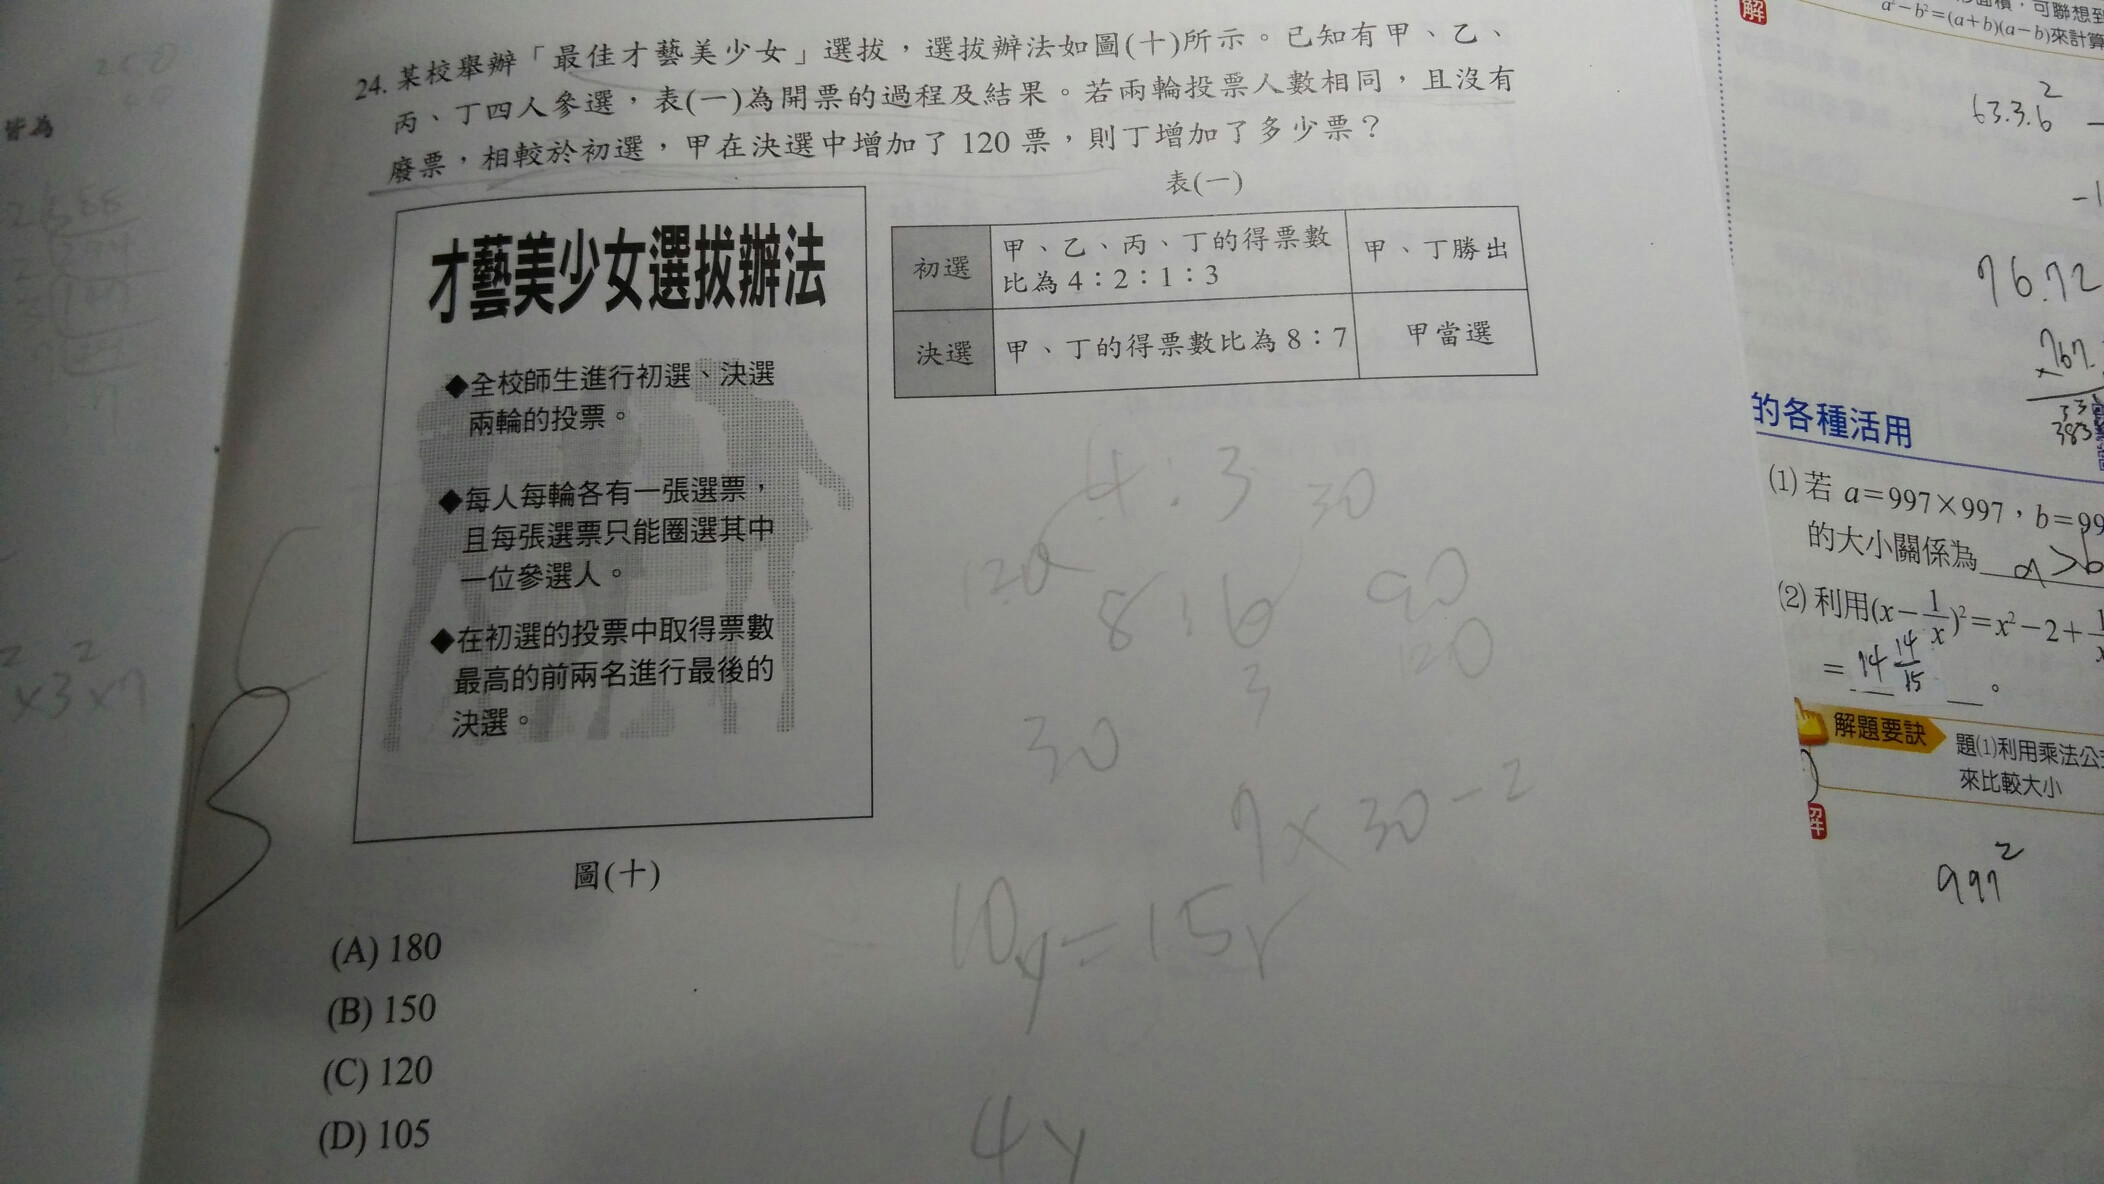 24. 某校舉辦「最佳才藝美少女」選拔，選拔辦法如圖(十)所示。已知有甲、乙、
丙、丁四人參選，表(一)為開票的過程及結果。若兩輪投票人數相同，且沒有
廢票，相較於初選，甲在決選中增加了 120 票，則丁增加了多少票？
才藝美少女選拔辦法
◆全校師生進行初選、決選
兩輪的投票。
◆每人每輪各有一張選票，
且每張選票只能圈選其中
一位參選人。
◆在初選的投票中取得票數
最高的前兩名進行最後的
決選。
圖(十)
表(一)
初選
甲、乙、丙、丁的得票數
比為 4：2：1：3
甲、丁勝出
決選
甲、丁的得票數比為 8：7
甲當選
4:3
30
120
8:6
90
120
3
30
7×30-2
10y=15r
4y
B
(A) 180
(B) 150
(C) 120
(D) 105
皆為
×3²×7
解
，可聯想到
a²－b²＝(a＋b)(a－b)來計算
63.3.6²
76.72
的各種活用
(1) 若 a＝997×997，b＝99
的大小關係為 a>b
(2) 利用(x－1/x)²＝x²－2＋1
＝14 14/15 。
解題要訣
題(1)利用乘法公
來比較大小
解
997²